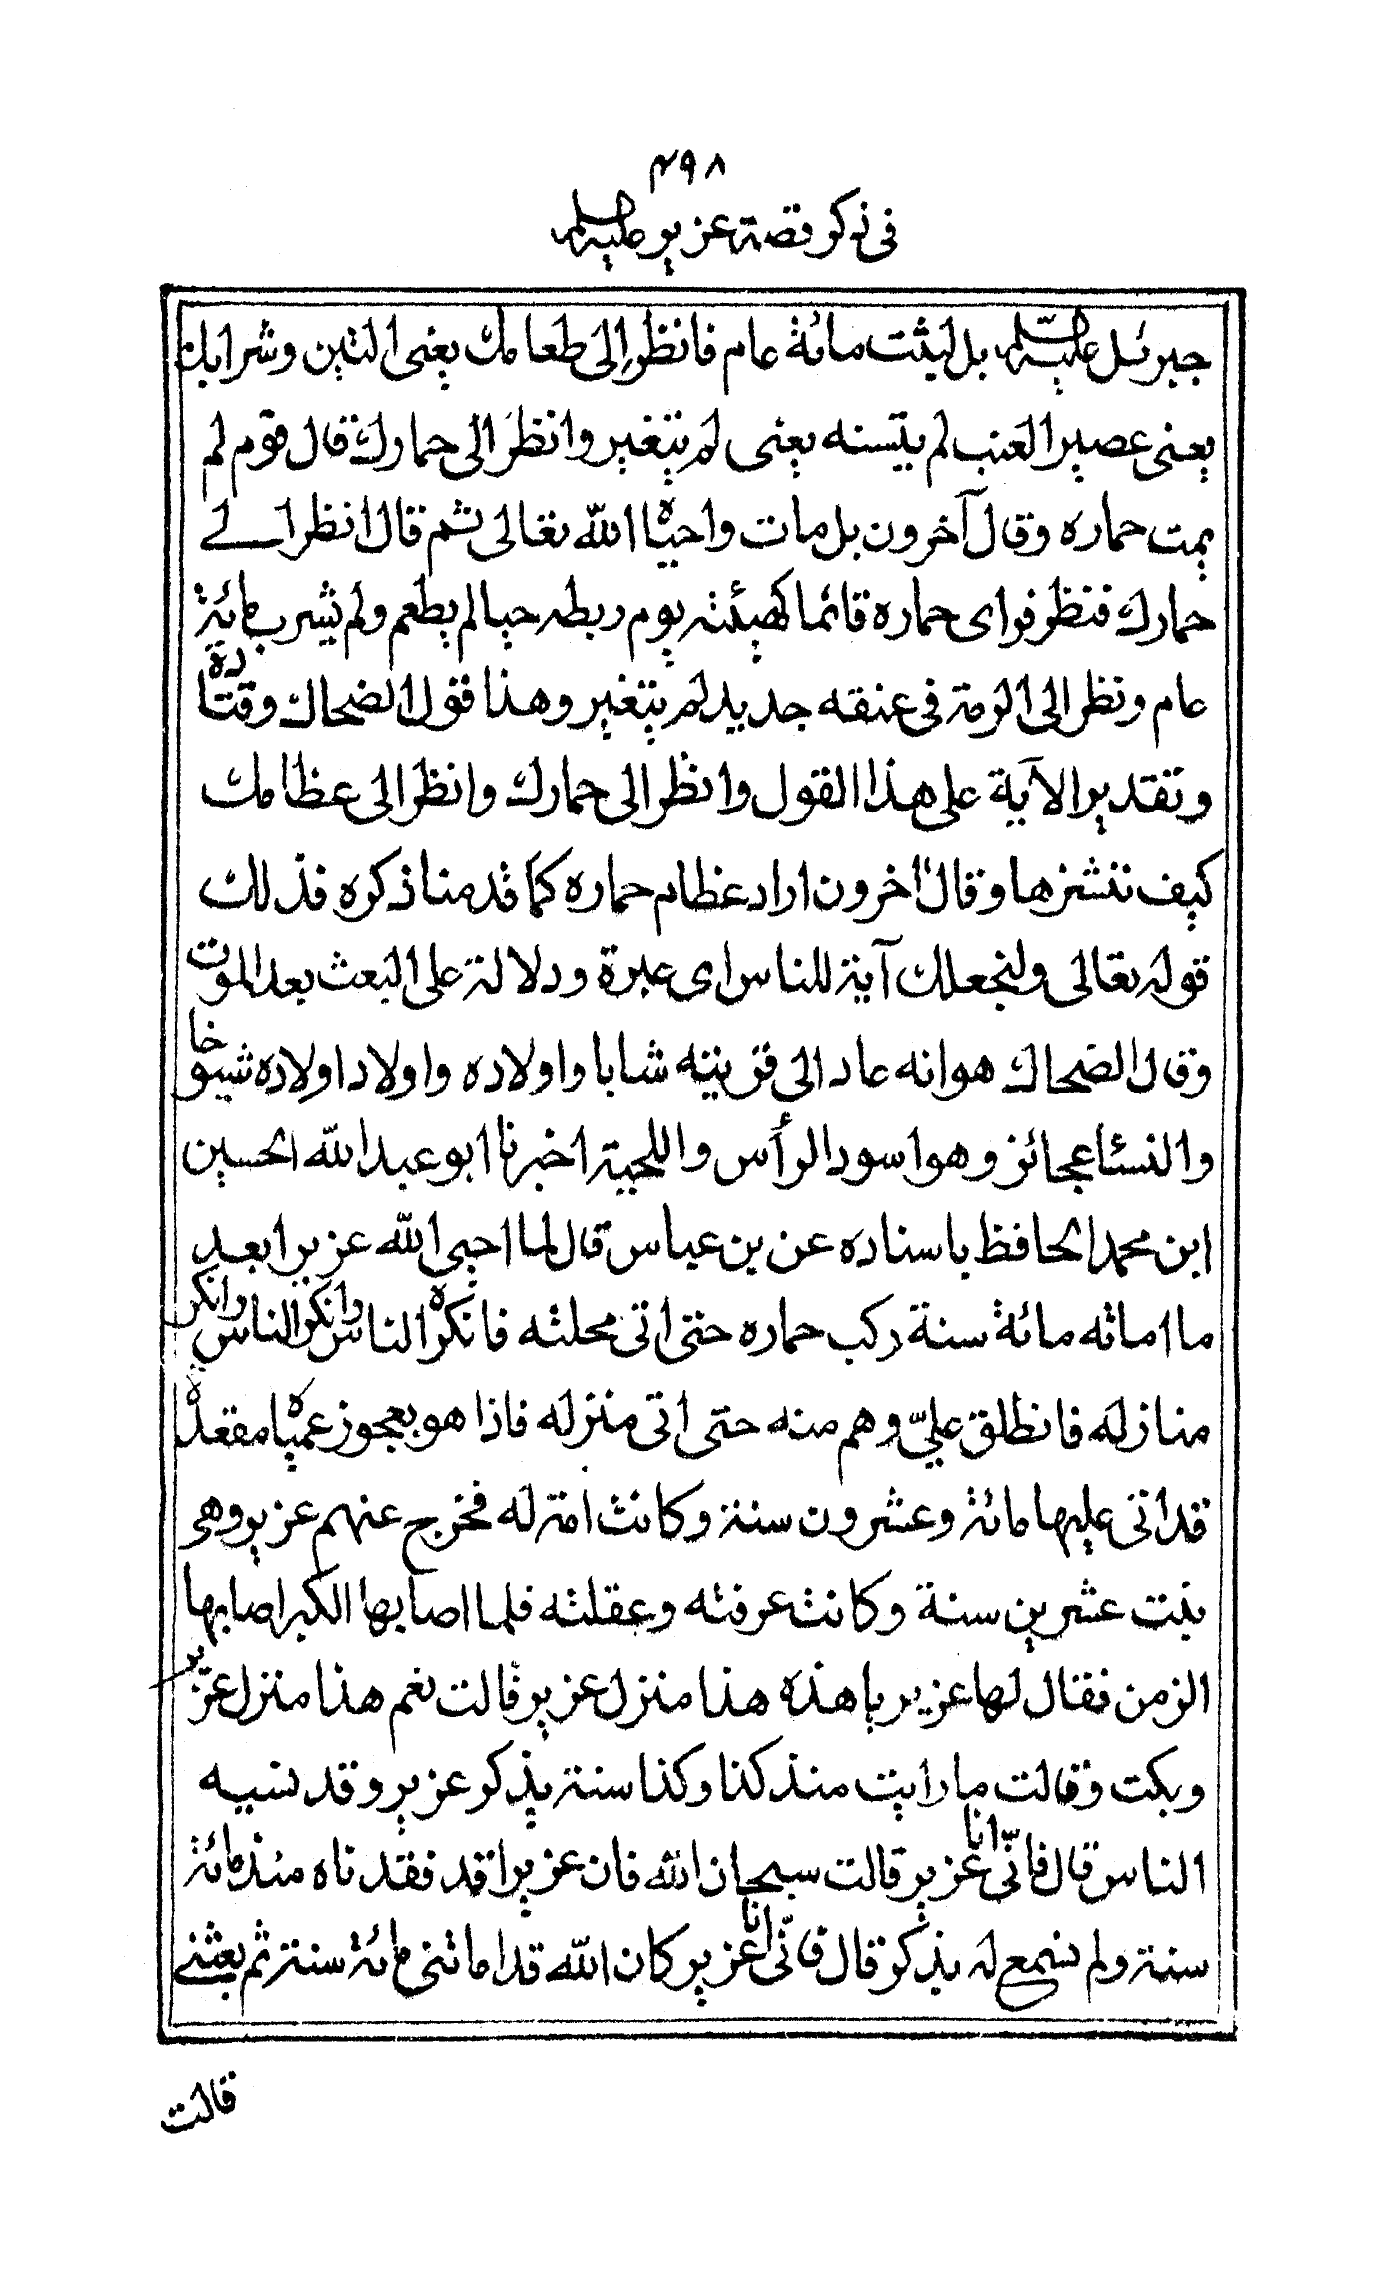 ۴۹۸
فى ذكر قصة عزير عليه السلم
جبرئل عليه السلم بل لبثت مائة عام فانظر الى طعامك يعنى التين وشرابك
يعنى عصير العنب لم يتسنه يعنى لم يتغير وانظر الى حمارك قال قوم لم
يمت حماره وقال آخرون بل مات واحياه الله تعالى ثم قال انظر الے
حمارك فنظر فراى حماره قائما كهيئته يوم ربطه حيا لم يطعم ولم يشرب مائة
عام ونظر الى الرمة فى عنقه جديد لم يتغير وهذا قول الضحاك وقتادة
وتقدير الآية على هذا القول وانظر الى حمارك وانظر الى عظامك
كيف ننشزها وقال آخرون اراد عظام حماره كما قدمنا ذكره فذلك
قوله تعالى ولنجعلك آية للناس اى عبرة ودلالة على البعث بعد الموت
وقال الضحاك هو انه عاد الى قريته شابا واولاده واولاد اولاده شيوخا
والنسئا عجائز وهو اسود الرأس واللحية اخبرنا ابو عبد الله الحسين
ابن محمد الحافظ باسناده عن بن عباس قال لما احيى الله عزيرا بعد
ما اماته مائة سنة ركب حماره حتى اتى محلته فانكره الناس وانكر الناس وانكر
منازله فانطلق علىّ وهم منه حتى اتى منزله فاذا هو بعجوز عمياه مقعدة
قد اتى عليها مائة وعشرون سنة وكانت امة له فخرج عنهم عزير وهى
بنت عشرين سنة وكانت عرفته وعقلته فلما اصابها الكبر اصابها
الزمن فقال لها عزير يا هذه هذا منزل عزير قالت نعم هذا منزل عزير
وبكت وقالت ما رايت منذ كذا وكذا سنة يذكر عزير وقد نسيه
الناس قال فانّى انا عزير قالت سبحان الله فان عزيرا قد فقدناه منذ مائة
سنة ولم نسمع له بذكر قال فانّى انا عزير كان الله قد اماتنى مائة سنة ثم بعثنے
قالت